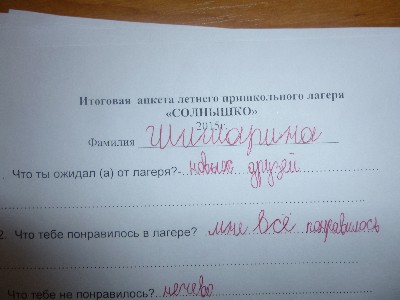 Итоговая анкета летнего пришкольного лагеря
«СОЛНЫШКО»
2015г.
Фамилия Шишарина
. Что ты ожидал (а) от лагеря?- новых друзей
2. Что тебе понравилось в лагере? мне всё понравилось
Что тебе не понравилось?. нечево